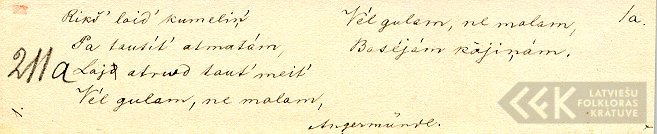 Rikš' laid' kumeliņ'
Pa tautit' atmatām,
211a Laj atrud taut' meit'
Vēl gulam, ne malam,
Vēl gulam, ne malam,
Basējām kājiņām.
1a.
Angermünde.
LATVIEŠU
FOLKLORAS
KRĀTUVE